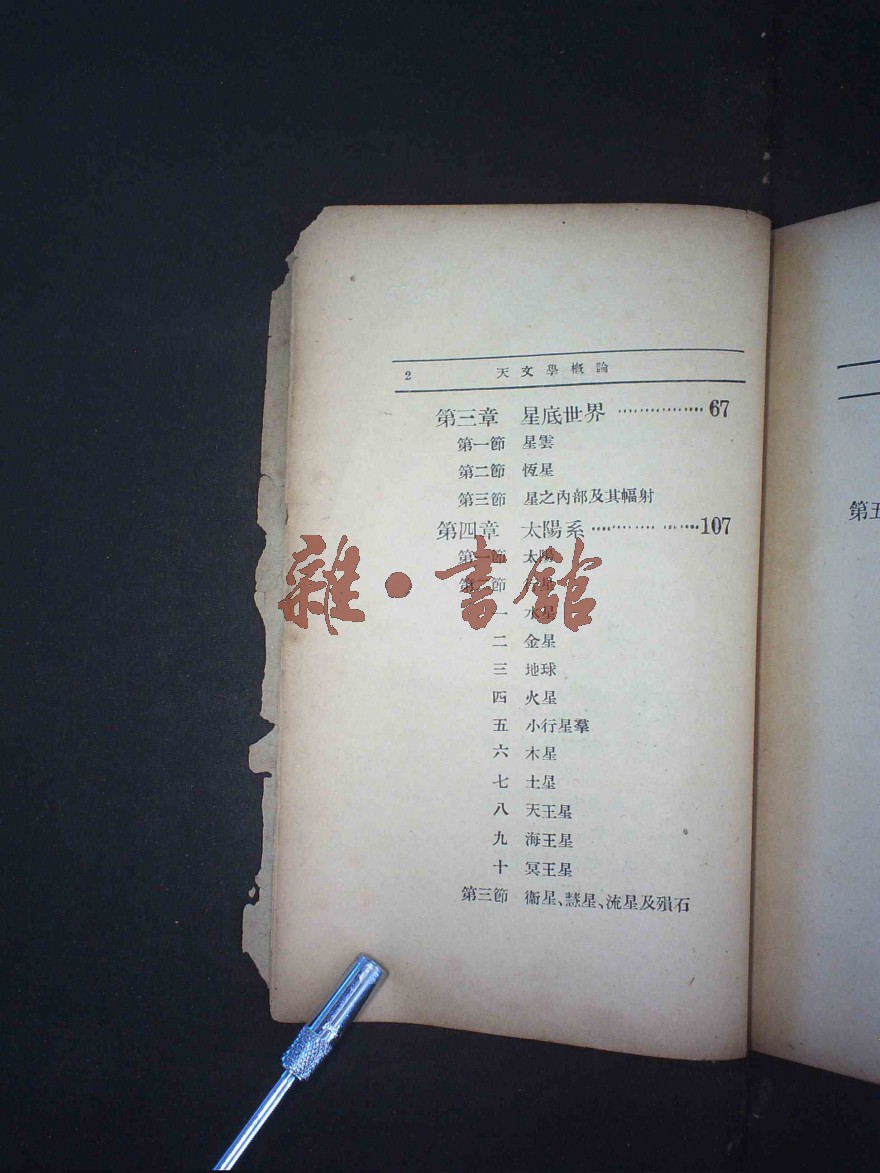 2 天文學概論
第三章 星底世界 ·················67
第一節 星雲
第二節 恆星
第三節 星之內部及其輻射
第四章 太陽系 ·················107
第一節 太陽
第二節 行星
一 水星
二 金星
三 地球
四 火星
五 小行星羣
六 木星
七 土星
八 天王星
九 海王星
十 冥王星
第三節 衞星、彗星、流星及殞石
雜·書館
第五